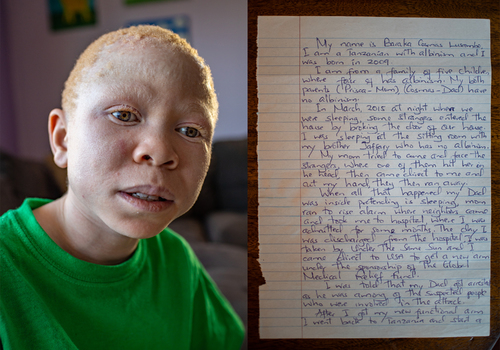 My name is Baraka Cosmas Lusambo.
I am a Tanzanian with albinism and I
was born in 2009.
I am from a family of five children
where four of has albinism. My both
parents (Prisca - Mom) (Cosmas - Dad) have
no albinism.
In March, 2015 at night when we
were sleeping, some strangers entered the
house by broking the door of our house.
I was sleeping at the sitting room with
my brother Jaffary who has no albinism.
My mom tried to come and face the
strangers where one of them hit her on
head, then came direct to me and
cut my hand, they then ran away.
When all that happened my Dad
was inside pretending is sleeping, mom
ran to rise alarm where neighbors came
and took me to hospital where I was
admitted for some months. The day I
was discharged from the hospital I was
taken by Under The Same Sun and I
came direct to USA to get a new arm
under the sponsorship of The Global
Medical Relief Fund.
I was told that my Dad got arrested
as he was among of the suspected people
who were involved in the attack.
After I got my new functional arm
I went back to Tanzania and